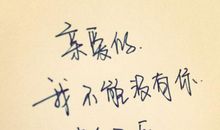 亲爱的.
我不能没有你.